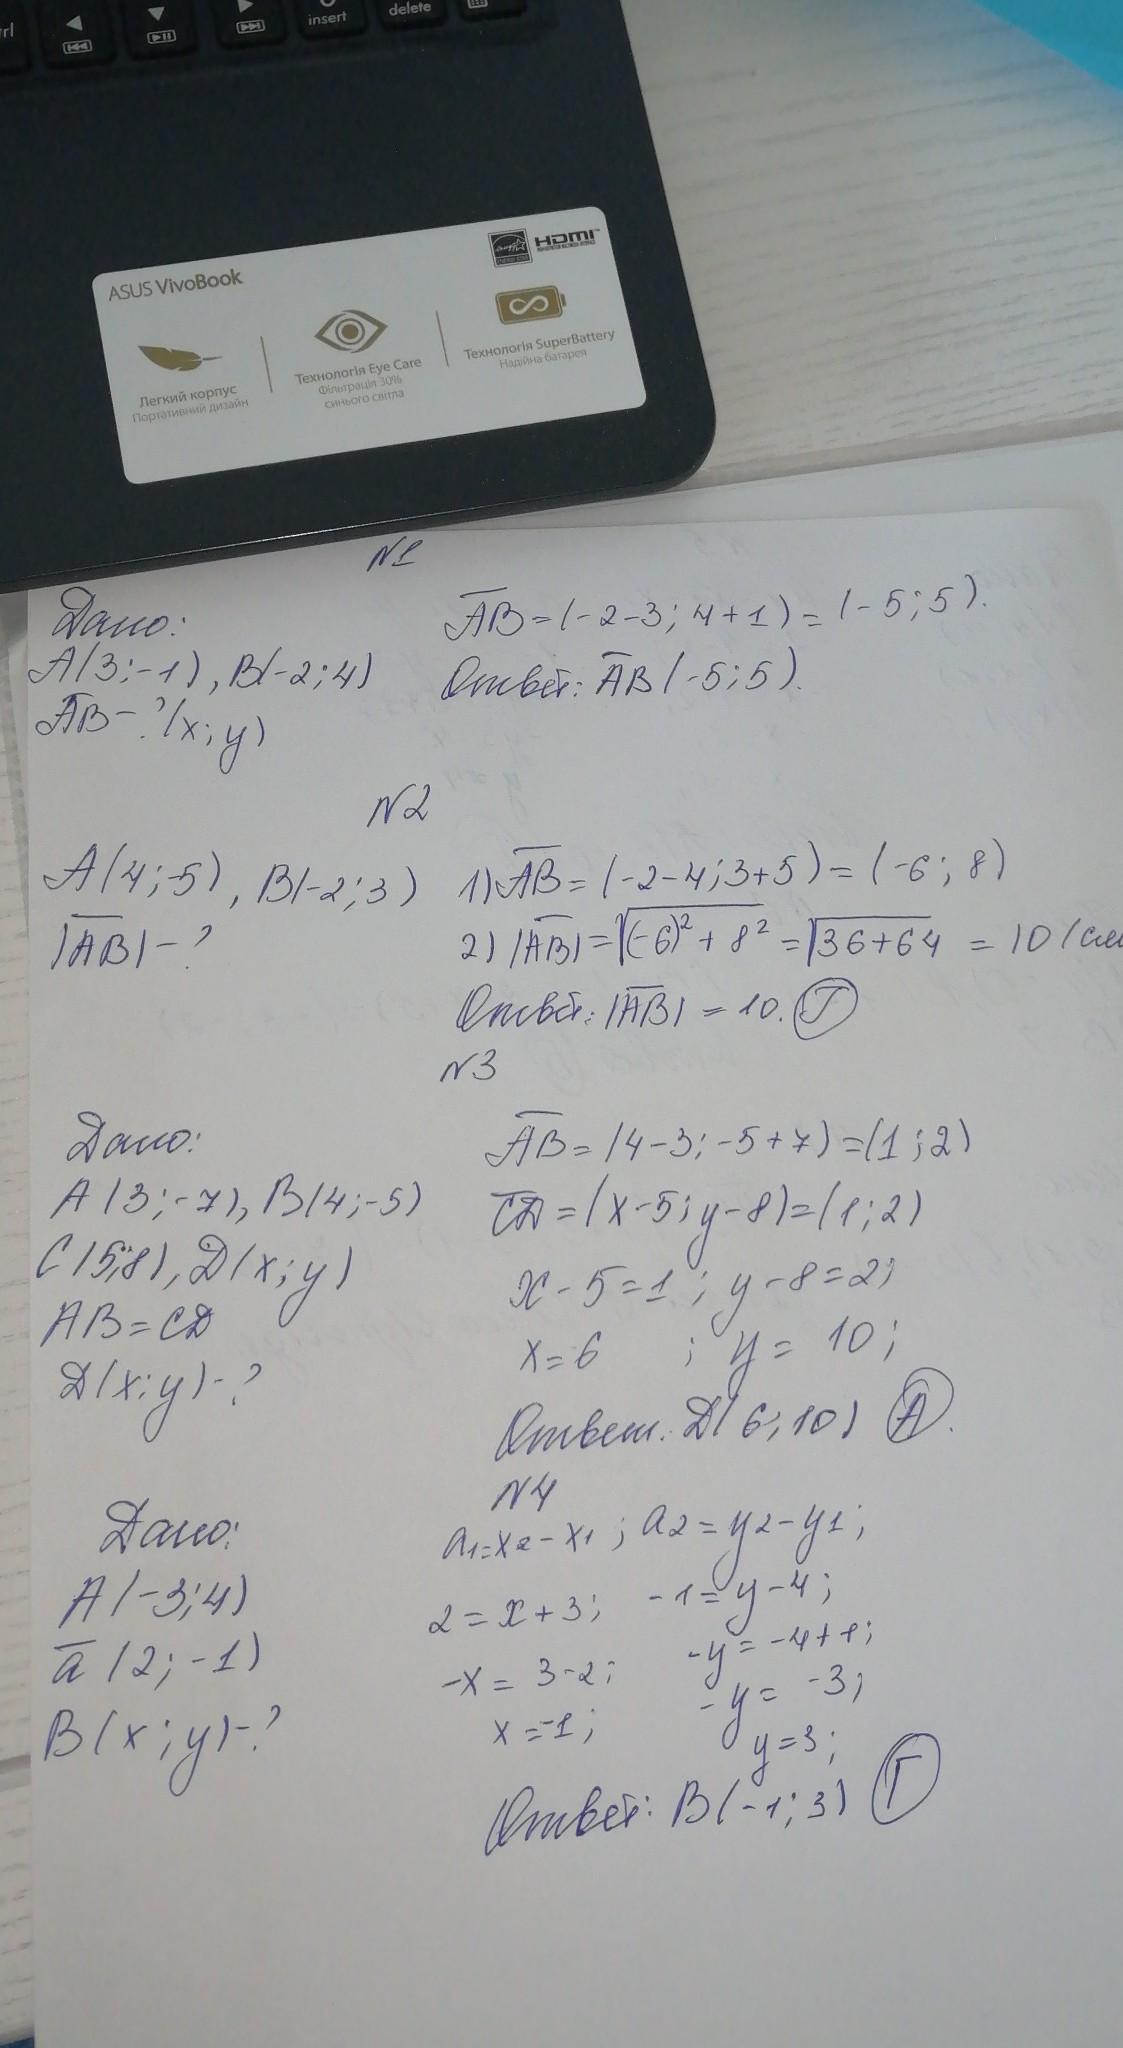 ctrl
insert
delete
HDMI™
ASUS VivoBook
Легкий корпус
Портативний дизайн
Технологія Eye Care
Фільтрація 30%
синього світла
Технологія SuperBattery
Надійна батарея
N1
Дано:
A(3;-1), B(-2;4)
AB-?(x;y)
AB=(-2-3; 4+1)=(-5;5).
Ответ: AB(-5;5).
N2
A(4;-5), B(-2;3)
|AB|-?
1) AB=(-2-4;3+5)=(-6;8)
2) |AB|=√(-6)²+8²=√36+64=10(см
Ответ: |AB|=10. Г
N3
Дано:
A(3;-7), B(4;-5)
C(5;8), D(x;y)
AB=CD
D(x;y)-?
AB=(4-3;-5+7)=(1;2)
CD=(x-5;y-8)=(1;2)
x-5=1; y-8=2;
x=6; y=10;
Ответ. D(6;10) А.
N4
Дано:
A(-3;4)
a(2;-1)
B(x;y)-?
a1=x2-x1; a2=y2-y1;
2=x+3; -1=y-4;
-x=3-2; -y=-4+1;
x=-1; -y=-3;
y=3;
Ответ: B(-1;3) Г